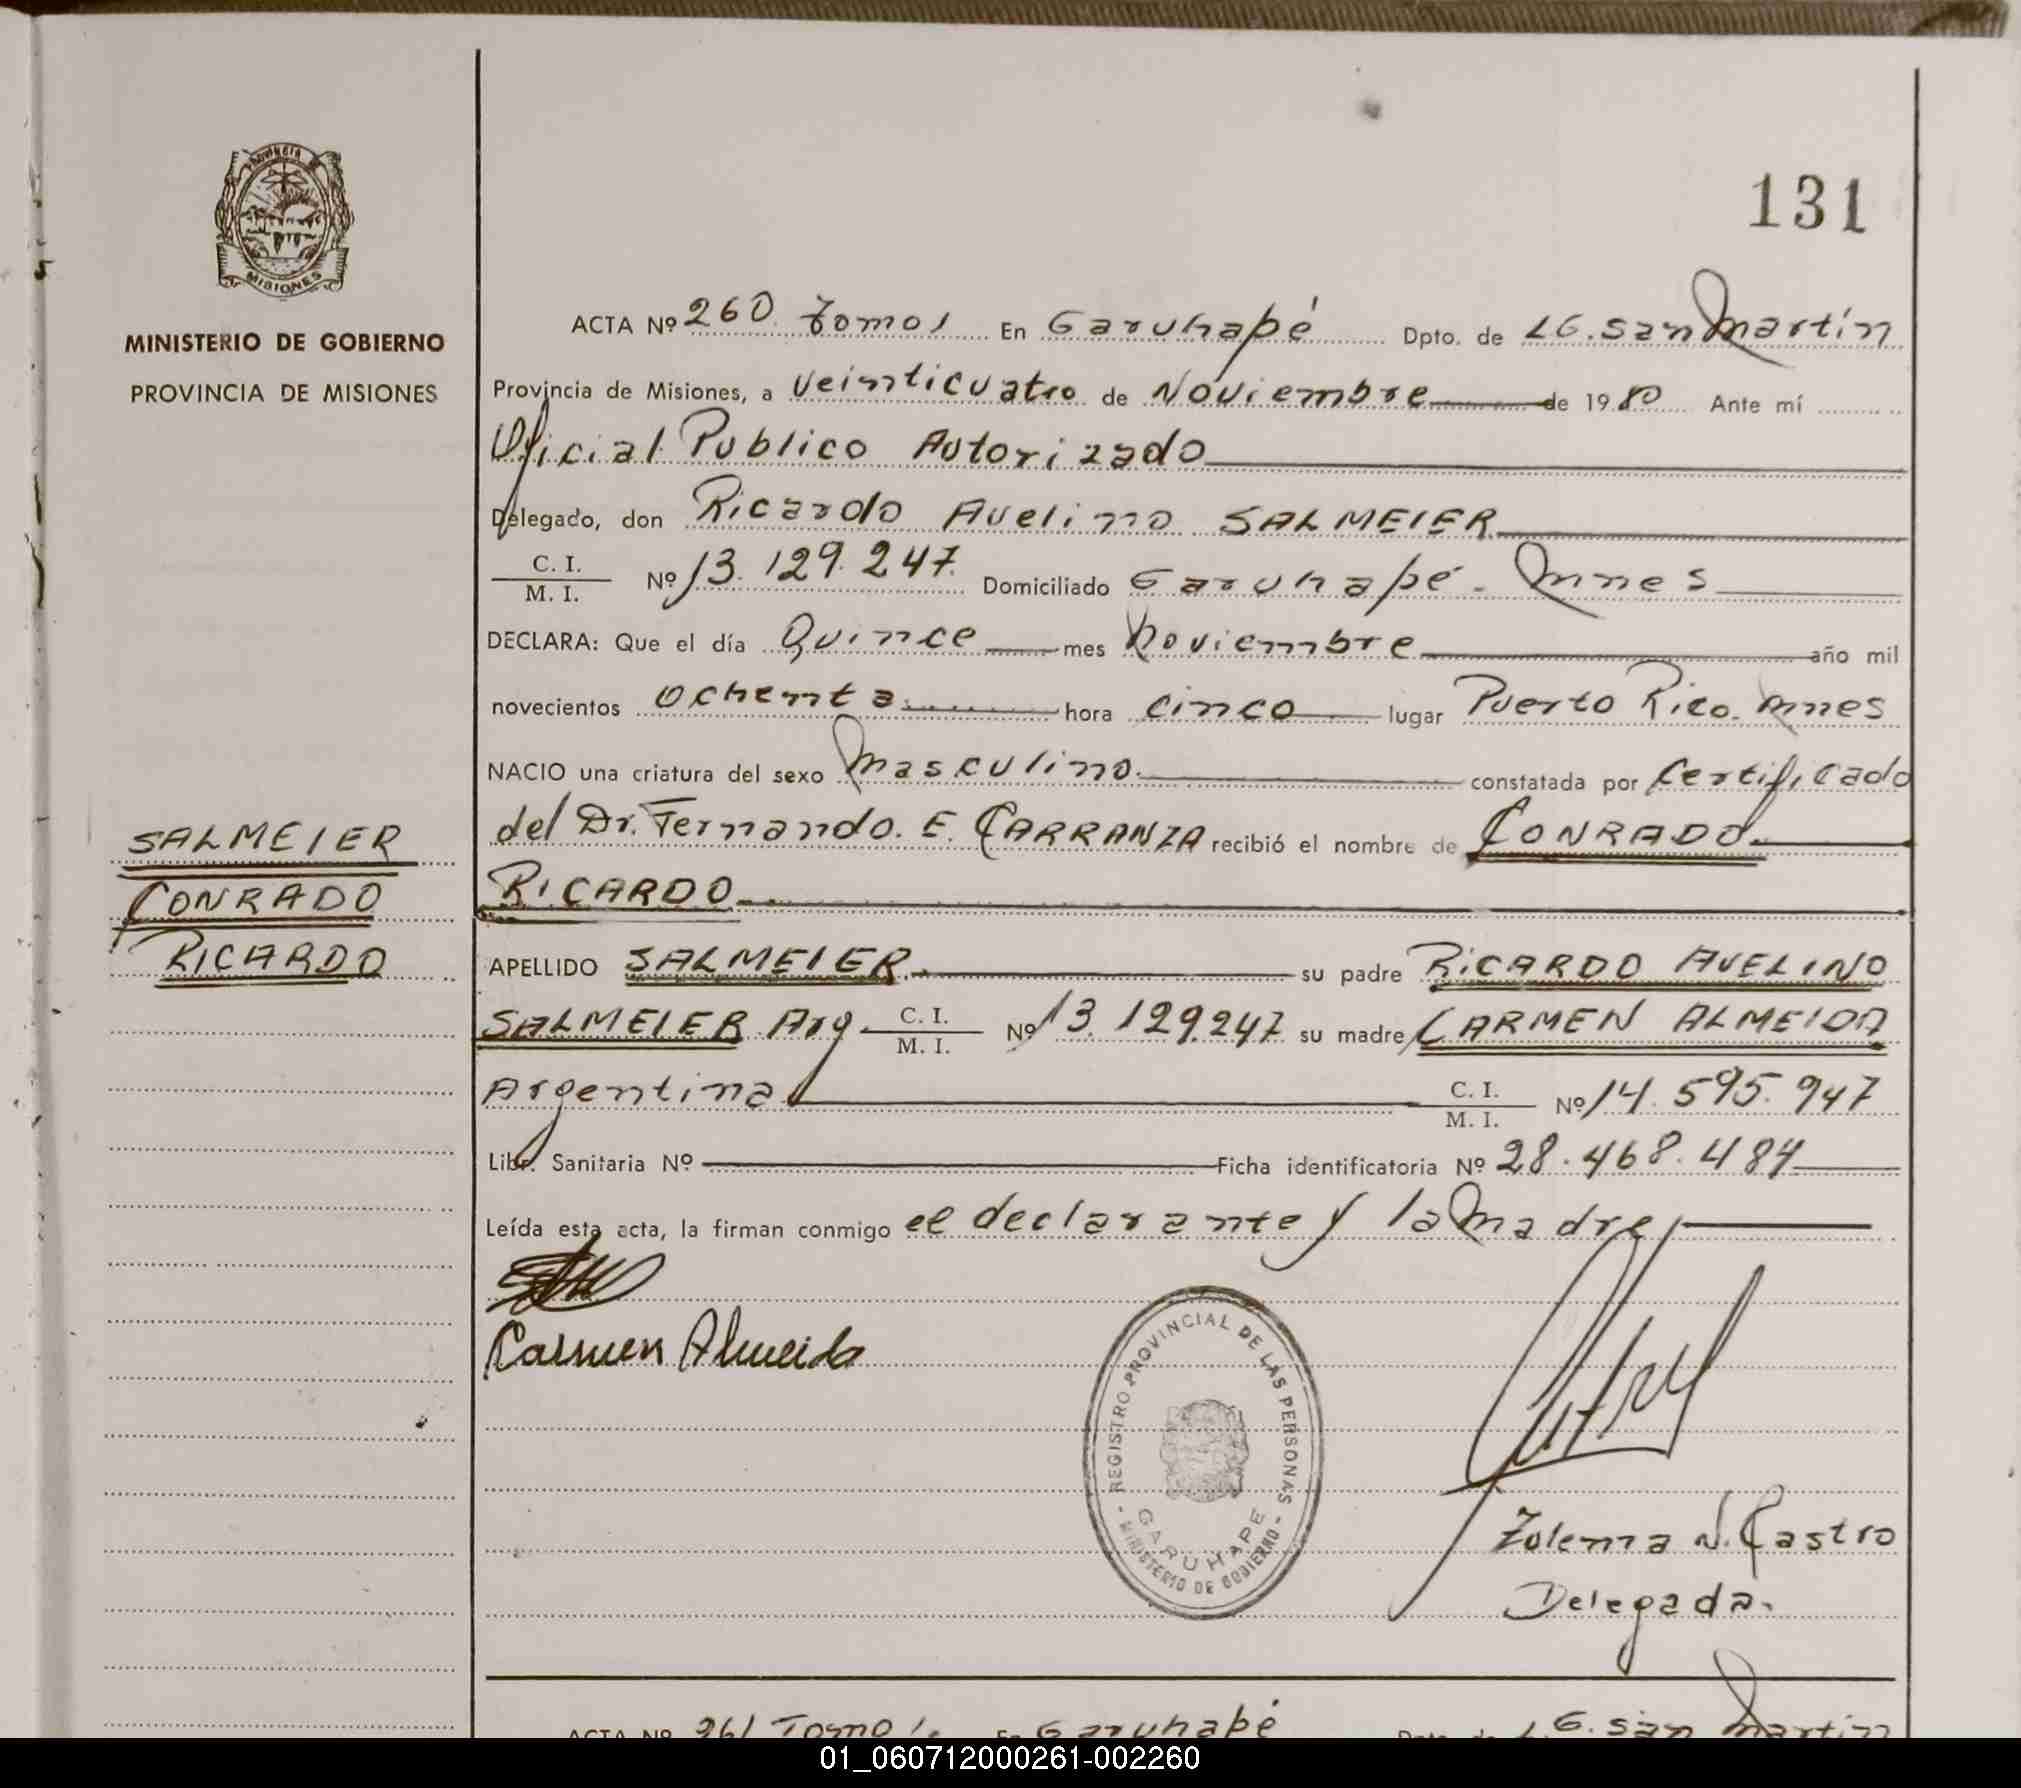 131
PROVINCIA DE
MISIONES
MINISTERIO DE GOBIERNO
PROVINCIA DE MISIONES
ACTA Nº 260 Tomo I En Garuhapé Dpto. de LG. San Martín
Provincia de Misiones, a Veinticuatro de Noviembre de 1980 Ante mí
Oficial Publico Autorizado
Delegado, don Ricardo Avelino SALMEIER
C. I. / M. I. Nº 13.129.247. Domiciliado Garuhapé - Mnes
DECLARA: Que el día Quince mes Noviembre año mil
novecientos Ochenta hora cinco lugar Puerto Rico. Mnes
NACIO una criatura del sexo Masculino. constatada por Certificado
del Dr. Fernando. E. CARRANZA recibió el nombre de CONRADO
RICARDO
SALMEIER
CONRADO
RICARDO
APELLIDO SALMEIER su padre RICARDO AVELINO
SALMEIER Arg. C. I. / M. I. Nº 13.129.247 su madre CARMEN ALMEIDA
Argentina C. I. / M. I. Nº 14.595.947
Libr. Sanitaria Nº Ficha identificatoria Nº 28.468.484
Leída esta acta, la firman conmigo el declarante y la Madre
Carmen Almeida
REGISTRO PROVINCIAL DE LAS PERSONAS
GARUHAPE
- MINISTERIO DE GOBIERNO -
Zulema N. Castro
Delegada.
ACTA Nº 261 Tomo I. En Garuhapé Dpto. de LG. San Martín
01_060712000261-002260